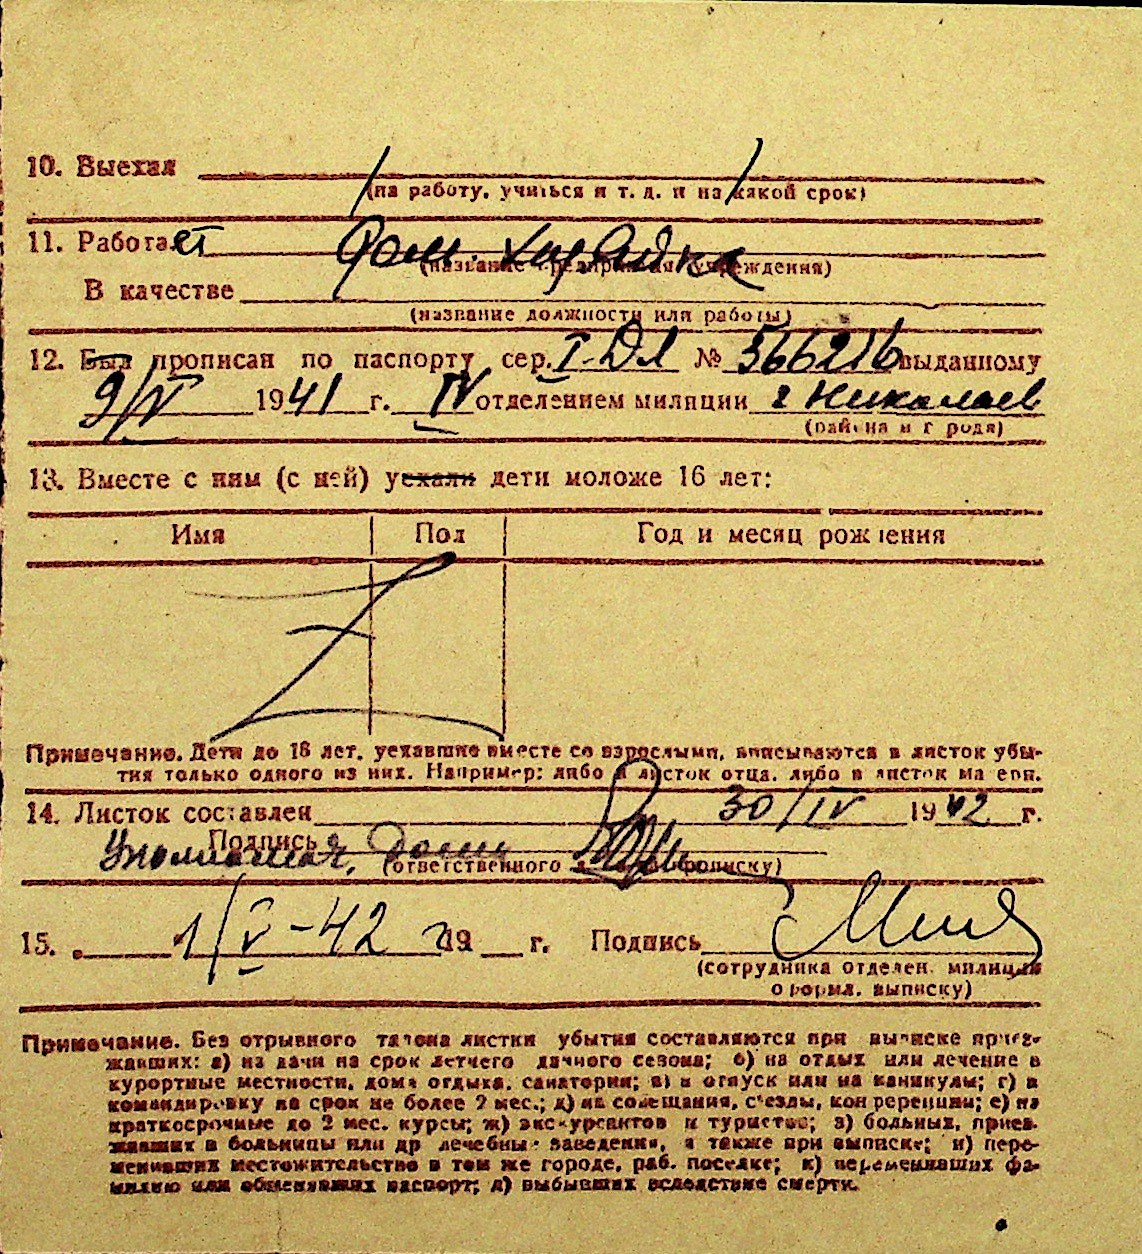 10. Выехал
(на работу, учиться и т. д. и на какой срок)
11. Работает дом. хозяйка
(название предприятия, учреждения)
В качестве
(название должности или работы)
12. Был прописан по паспорту сер. I-ДЛ № 566216 выданному
9/IV 1941 г. IV отделением милиции г Николаев
(района и города)
13. Вместе с ним (с ней) уехали дети моложе 16 лет:
Имя Пол Год и месяц рождения
Z
Примечание. Дети до 16 лет, уехавшие вместе со взрослыми, вписываются в листок убы-
тия только одного из них. Например: либо в листок отца, либо в листок матери.
14. Листок составлен 30/IV 1942 г.
Подпись
(ответственного за прописку)
15. „ 1/V-42 г 19 г. Подпись
(сотрудника отделен. милиции
оформл. выписку)
Примечание. Без отрывного талона листки убытия составляются при выписке приез-
жавших: а) на дачи на срок летнего дачного сезона; б) на отдых или лечение в
курортные местности, дома отдыха, санатории; в) в отпуск или на каникулы; г) в
командировку на срок не более 2 мес.; д) на совещания, съезды, конференции; е) на
краткосрочные до 2 мес. курсы; ж) экскурсантов и туристов; з) больных, приез-
жавших в больницы или др лечебные заведения, а также при выписке; и) пере-
менивших местожительство в том же городе, раб. поселке; к) переменивших фа-
милию или обменявших паспорт; л) выбывших вследствие смерти.